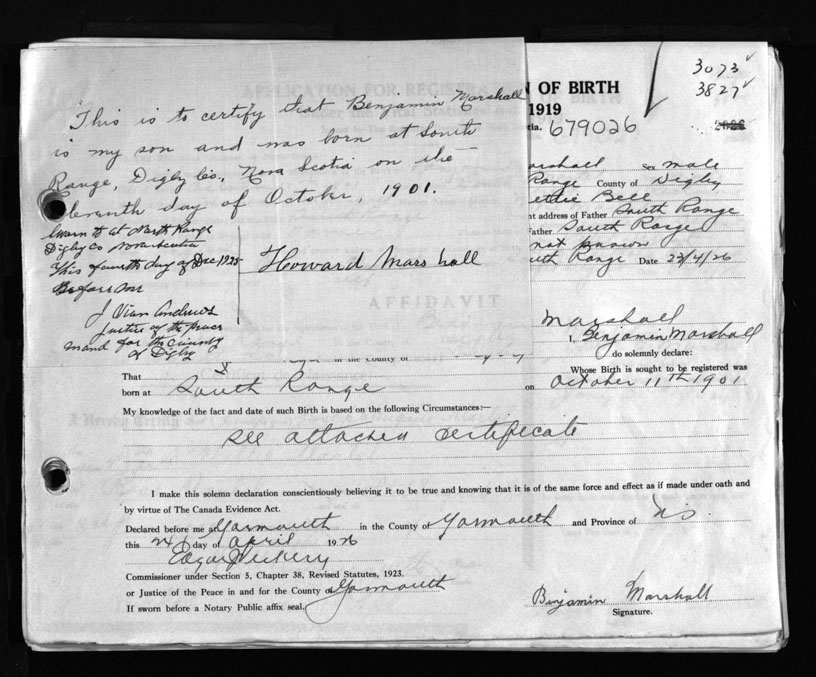 This is to certify that Benjamin Marshall
is my son and was born at South
Range, Digby Co., Nova Scotia on the
eleventh day of October, 1901.
Sworn to at North Range
Digby Co Nova Scotia
This fourth day of Dec 1925
Before me
Justice of the peace
in and for the county
of Digby
Howard Marshall
N OF BIRTH
1919
tia. 679026
3073
3827
arshall Sex male
Range County of Digby
ettie Bell
nt address of Father South Range
Father South Range
not known
uth Range Date 23/4/26
AFFIDAVIT
Marshall
I, Benjamin Marshall
do solemnly declare:
in the County of
That Whose Birth is sought to be registered was
born at South Range on October 11th 1901
My knowledge of the fact and date of such Birth is based on the following Circumstances:—
see attached certificate
I make this solemn declaration conscientiously believing it to be true and knowing that it is of the same force and effect as if made under oath and
by virtue of The Canada Evidence Act.
Declared before me at Yarmouth in the County of Yarmouth and Province of NS.
this 24 day of April 1926
Commissioner under Section 5, Chapter 38, Revised Statutes, 1923.
or Justice of the Peace in and for the County of Yarmouth
If sworn before a Notary Public affix seal.
Benjamin Marshall
Signature.